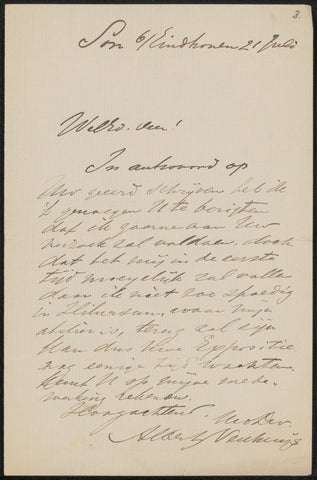 3.
Son b/Eindhoven 21 Juli
WelEd. Heer!
In antwoord op
Uw geëerd schrijven heb ik
't genoegen U te berigten
dat ik gaarne aan Uw
verzoek zal voldoen, doch
dat het mij in de eerste
tijd moeyelijk zal vallen
daar ik niet zoo spoedig
in Hilversum, waar mijn
atelier is, terug zal zijn
Kan dus Uwe Expositie
nog eenige tijd wachten
kunt U op mijne mede-
werking rekenen.
Hoogachtend.
Uw Dv.
Albert Neuhuijs